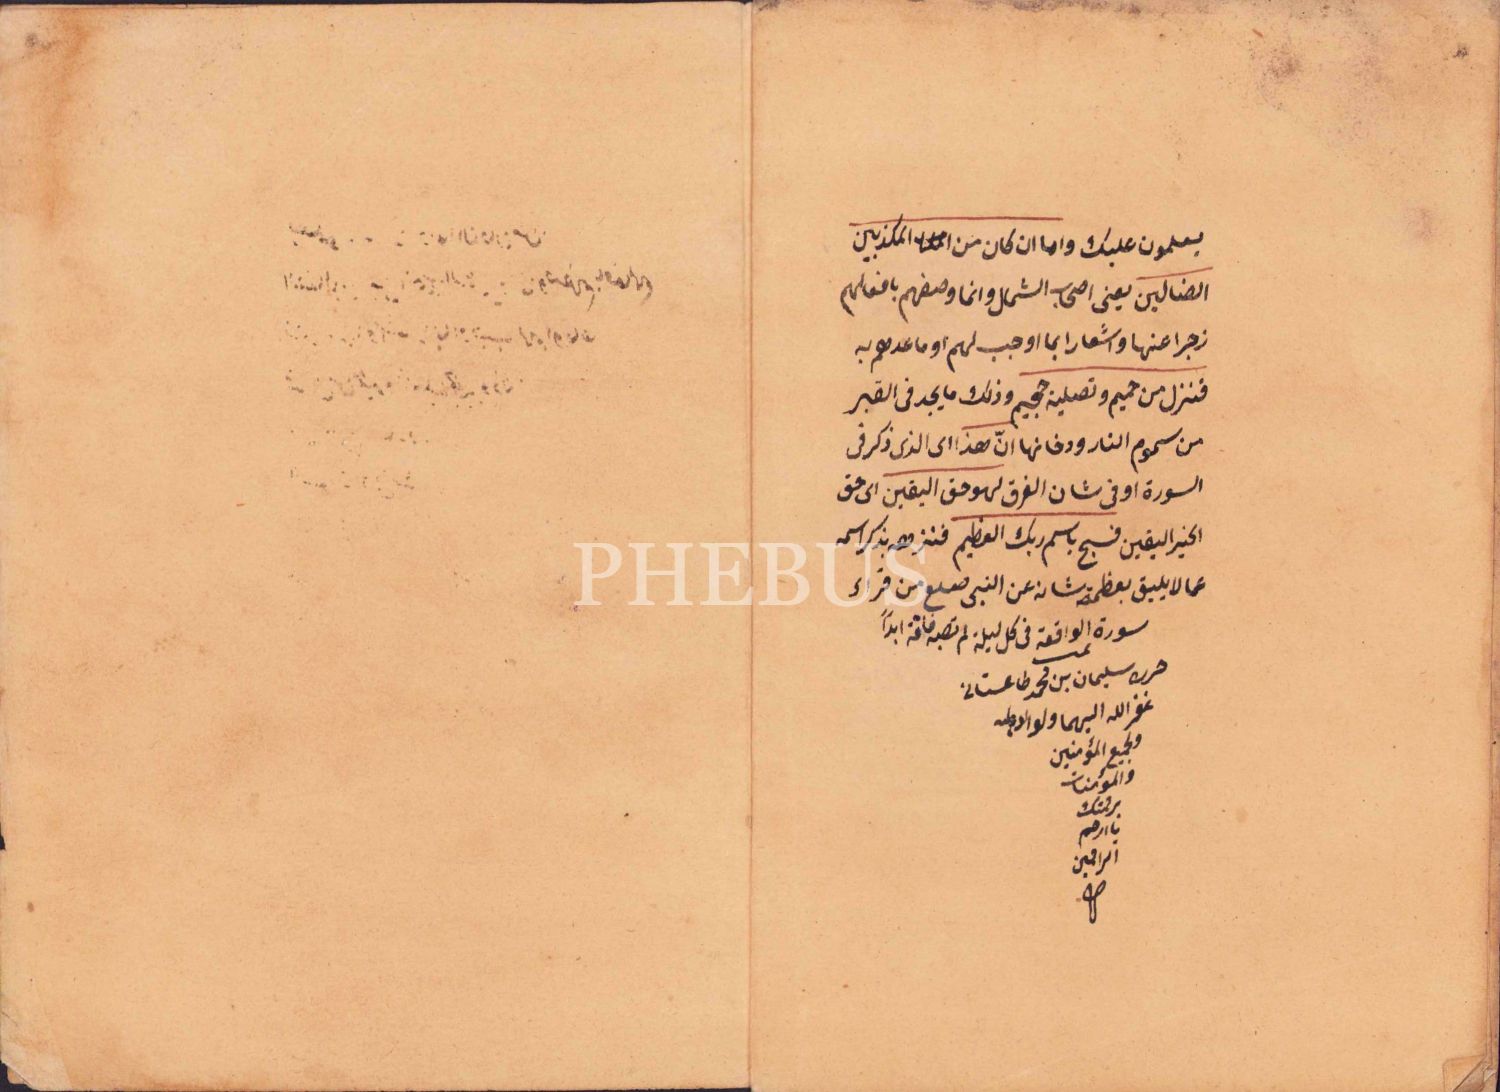 يسلمون عليك واما ان كان من المكذبين
الضالين يعنى اصحاب الشمال وانما وصفهم بافعالهم
زجرا عنها واشعارا بما اوجب لهم اوما عدهم به
فنزل من حميم وتصلية جحيم وذلك ما يجد فى القبر
من سموم النار ودخانها انّ هذا اى الذى ذكر فى
السورة او فى شان الفرق لهو حق اليقين اى حق
الخبر اليقين فسبح باسم ربك العظيم فنزهه بذكر اسمه
عما لا يليق بعظمة شانه عن النبى صلعم من قراء
سورة الواقعة فى كل ليلة لم تصبه فاقة ابداً
تمت
حرره سليمان بن محمد
غفر الله اليهما ولوالديهما
ولجميع المؤمنين
والمؤمنات
برحمتك
يا ارحم
الراحمين
PHEBUS